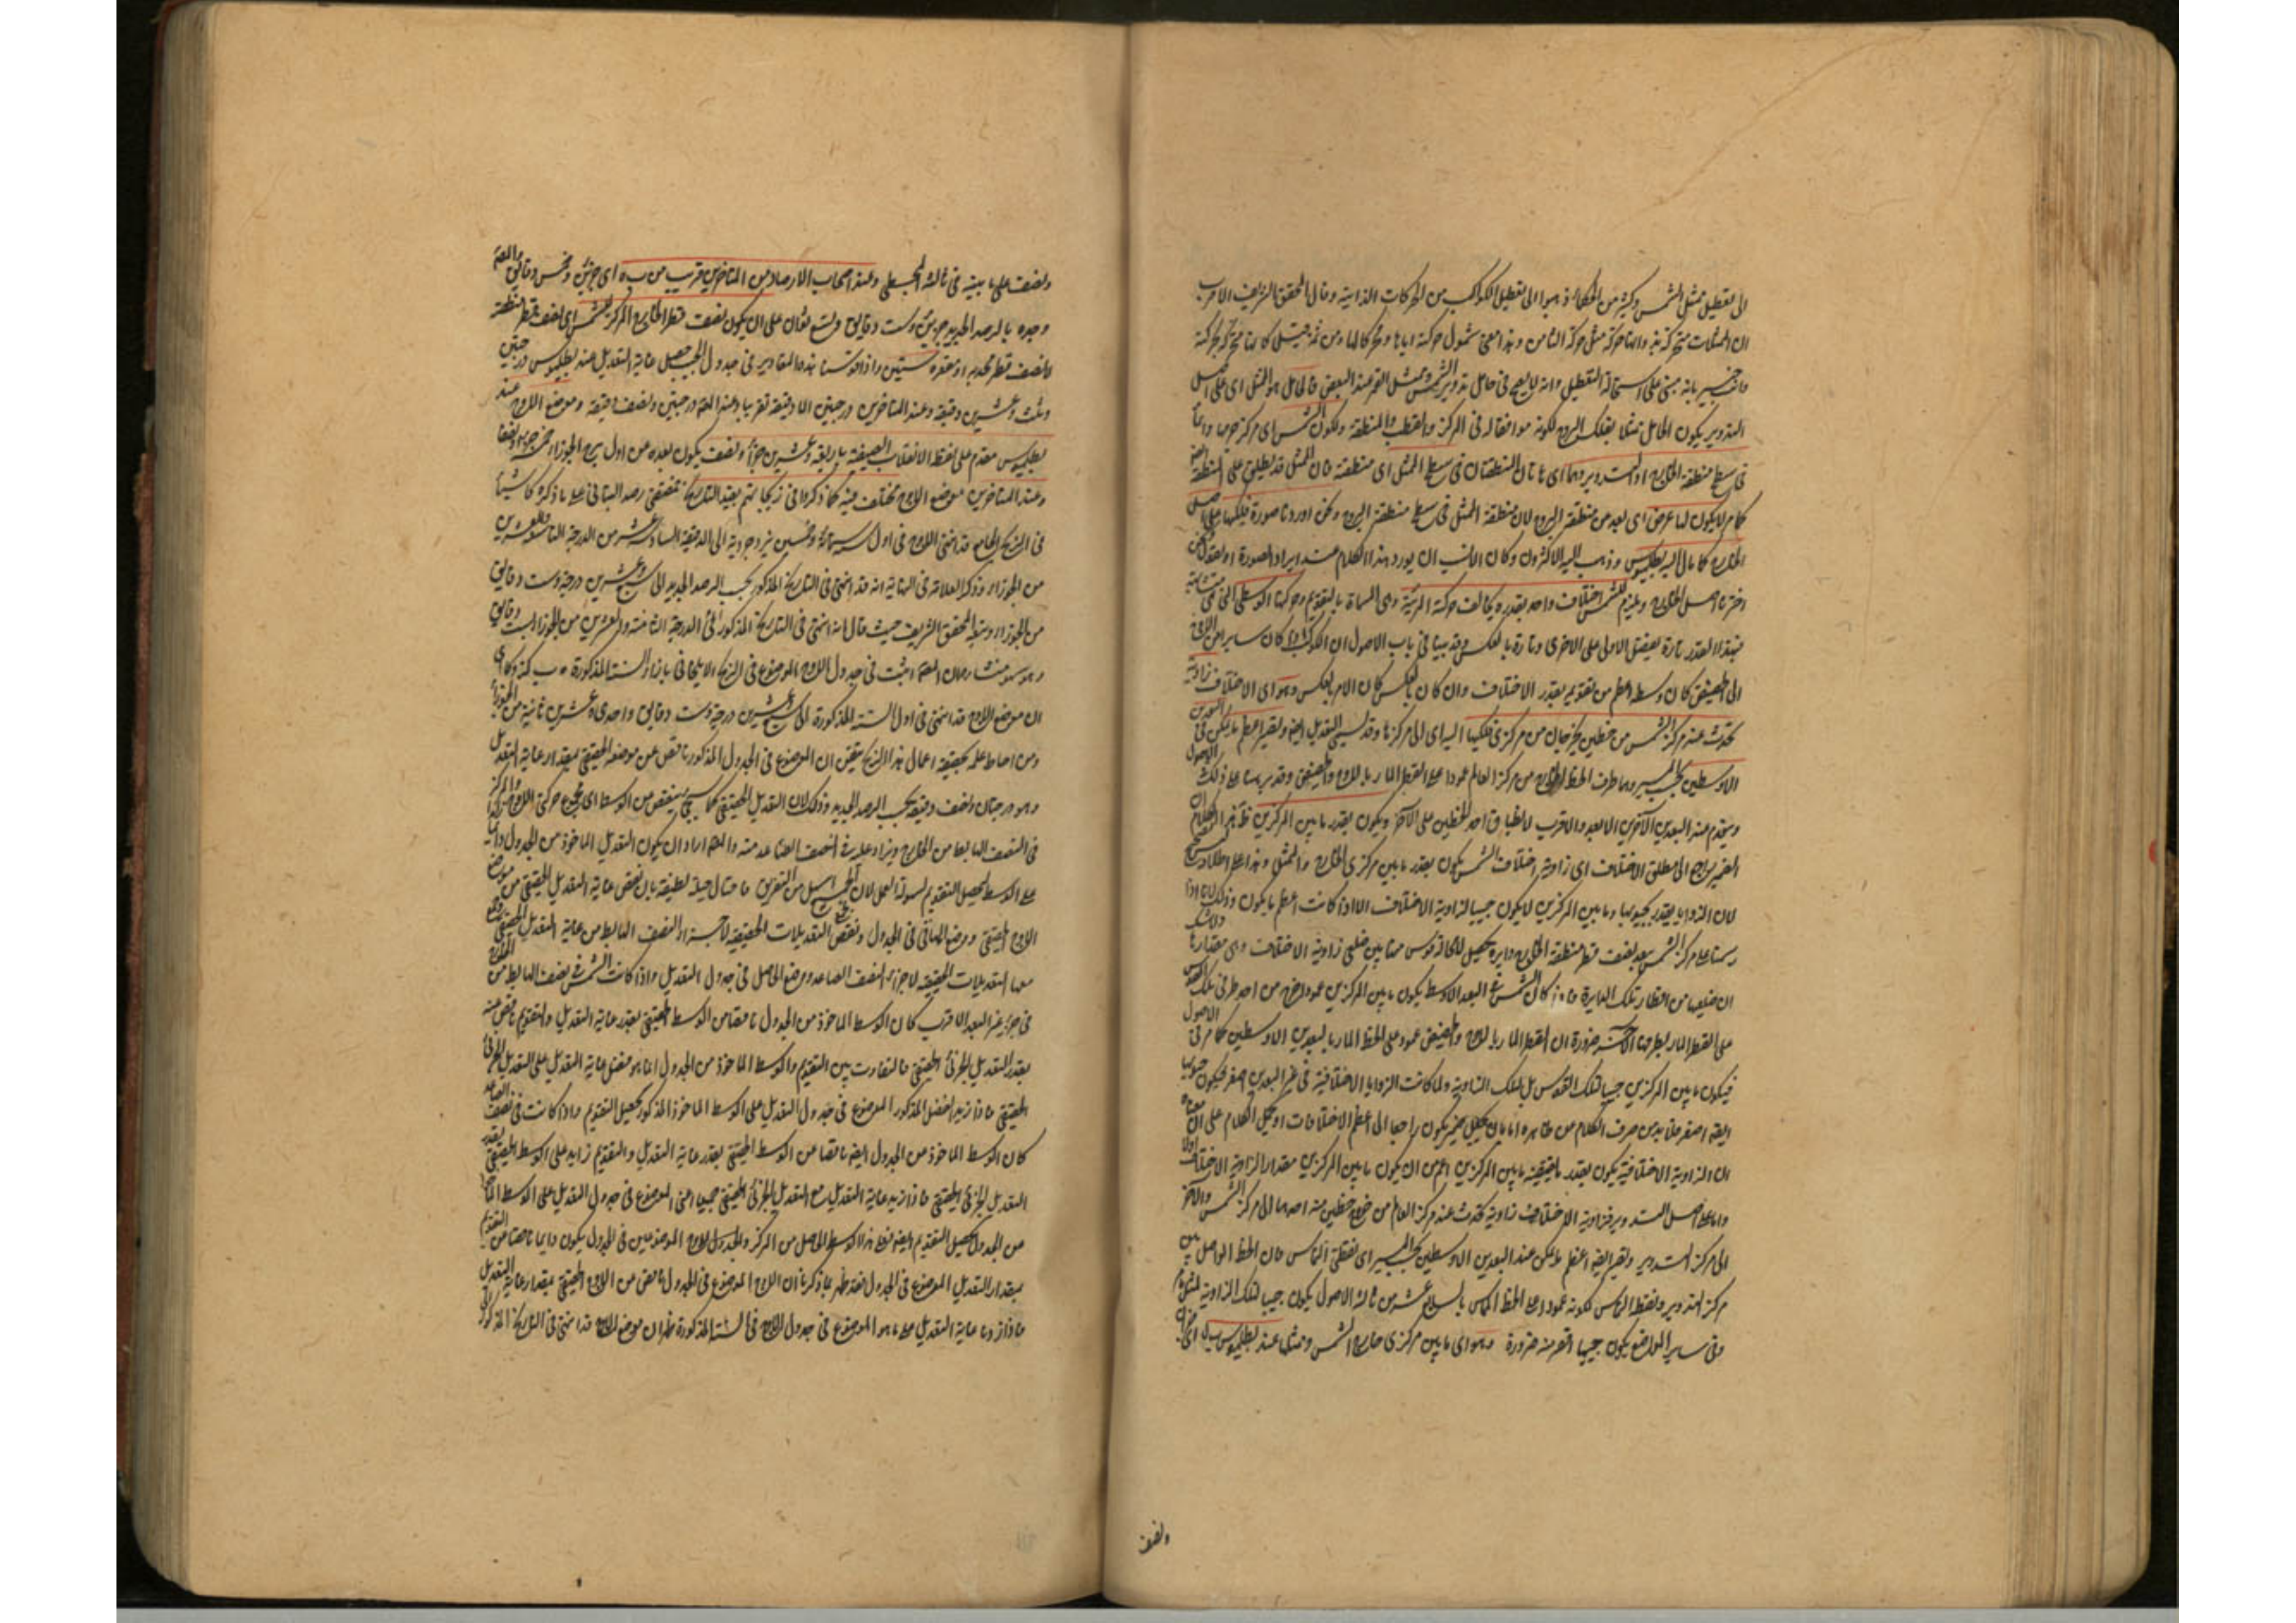 الى تعطيل ممثل الشمس وكثير من الحكماء ذهبوا الى تعطيل الكواكب من الحركات الذاتية وقال المحقق الشريف الاقرب
ان الممثلات متحركة بذواتها حركة مثل حركة الثامن وهذا معنى شمول حركة اياها
خبير بانه مبنى على استحالة التعطيل وانه لا يصح فى حامل تدوير الشمس وممثل القمر عند البعض فالحامل هو الممثل اى على اصل
التدوير يكون الحامل ممثلا بفلك البروج لكونه موافقا له فى المركز والقطب والمنطقة ولكون الشمس اى مركز جرمها دائما
فى سطح منطقة الخارج او التدوير وهما اى هاتان المنطقتان فى سطح الممثل اى منطقته فان الممثل قد يطلق على المنطقة
كما مر لا يكون لها عرض اى بعد عن منطقة البروج لان منطقة الممثل فى سطح منطقة البروج ونحن اوردنا صورة فلكها على اصل
الخارج كما مال اليه بطلميوس وذهب اليه الاكثرون وكان الانسب ان يورد هذا الكلام عند ايراد الصورة او يقول
اخترنا اصل الخارج ويلزم للشمس اختلاف واحد بقدره يخالف حركة المرئية وهى المسماة بالتقويم وحركتها الوسطى التى هى متشابهة
فبهذا القدر تارة يفضل الاولى على الاخرى وتارة بالعكس وقد بينا فى باب الاصول ان الكوكب اذا كان سايرا من الاوج
الى الحضيض كان وسطه اعظم من تقويمه بقدر الاختلاف وان كان بالعكس كان الامر بالعكس وهو اى الاختلاف زاوية
تحدث عند مركز الشمس من خطين يخرجان من مركزى فلكيها اليه اى الى مركزها وقد تسمى التعديل ايضا وتصير اعظم ما يكون فى البعدين
الاوسطين بحسب المسير وهما طرف الخط الخارج من مركز العالم عمودا على القطر المار بالاوج والحضيض وقد برهنا على ذلك
وينعدم عند البعدين الآخرين الابعد والاقرب لانطباق احد الخطين على الآخر ويكون بقدر ما بين المركزين ظاهر الكلام
الضمير راجع الى مطلق الاختلاف اى زاوية اختلاف الشمس يكون بقدر ما بين مركزى الخارج والممثل وهذا على اطلاقه
لان الزوايا يقدر بجيوبها وما بين المركزين لا يكون جيبا لزاوية الاختلاف الا اذا كانت اعظم ما يكون وذلك لانا اذا
رسمنا على مركز الشمس ببعد نصف قطر منطقة الخارج دايرة يحصل لا محالة قوس مما بين ضلعى زاوية الاختلاف وهى مقدارها
فاذا كان الشمس فى البعد الاوسط يكون ما بين المركزين عمودا خرج من احد طرفى تلك القوس
على القطر المار بطرفها الآخر ضرورة ان القطر المار بالاوج والحضيض عمود على الخط المار بالبعدين الاوسطين كما مر فى الاصول
فيكون ما بين المركزين جيبا لتلك القوس بل لتلك الزاوية ولما كانت الزوايا الاختلافية فى غير البعدين اصغر فيكون جيوبها
ايضا اصغر فلا بد من صرف الكلام من ظاهره اما بان يجعل ضمير يكون راجعا الى اعظم الاختلافات او يحمل الكلام على ان معناه
ان الزاوية الاختلافية يكون بقدر ما يقتضيه ما بين المركزين اعم من ان يكون ما بين المركزين مقدار الزاوية الاختلاف اولا
واما على اصل التدوير فزاوية الاختلاف زاوية تحدث عند مركز العالم من خروج خطين منه احدهما الى مركز الشمس والآخر
الى مركز التدوير وتصير ايضا اعظم ما يمكن عند البعدين الاوسطين بحسب المسير اى نقطتى التماس فان الخط الواصل بين
مركز التدوير ونقطة التماس لكونه عمودا على الخط المماس بالسابع عشر من ثالثة الاصول يكون جيبا لتلك الزاوية
وفى ساير المواضع يكون جيبها اقصر منه ضرورة وهو اى ما بين مركزى خارج الشمس وممثلها عند بطلميوس
ونصف
ونصف على ما بينه فى ثالثة المجسطى وعند اصحاب الارصاد من المتاخرين قريب من ب ه اى جزئين وخمس دقايق والعلامة
وجده بالرصد الجديد جزئين وست دقايق وتسع ثوان على ان يكون نصف قطر الخارج المركز للشمس اى نصف قطر منطقته
لا نصف قطر محدبه او مقعره ستين واذا قوسنا هذه المقادير فى جدول الجيب حصل غاية التعديل عند بطلميوس درجتين
وثلث وعشرين دقيقة وعند المتاخرين درجتين الا دقيقة تقريبا وعند العلامة درجتين ونصف دقيقة وموضع الاوج عند
بطلميوس مقدم على نقطة الانقلاب الصيفية باربعة وعشرين جزءا ونصف يكون بعده من اول برج الجوزاء خمسة اجزاء ونصفا
وعند المتاخرين موضع الاوج مختلف فيه كما ذكروا فى زيجاتهم بقيد التاريخ فمقتضى رصد البتانى على ما ذكره كوشيار
فى الزيج الجامع قد انتهى الاوج فى اول سنة وخمسين يزدجردية الى الدقيقة السادسة عشر من الدرجة الثامنة والعشرين
من الجوزاء وذكر العلامة فى النهاية انه قد انتهى فى التاريخ المذكور بحسب الرصد الجديد الى سبع وعشرين درجة وست دقايق
من الجوزاء وتبعه المحقق الشريف حيث قال انه انتهى فى التاريخ المذكور فى الدرجة الثامنة والعشرين من الجوزاء الى ست دقايق
وهو سهو منشاؤه ان العلامة اثبت فى جدول الاوج الموضوع فى الزيج الايلخانى بازاء السنة المذكورة
ان موضع الاوج قد انتهى فى اول السنة المذكورة الى سبع وعشرين درجة وست دقايق واحدى وعشرين ثانية من الجوزاء
ومن احاط علمه بحقيقة اعمال هذا الزيج تيقن ان الموضوع فى الجدول المذكور ناقص عن موضعه الحقيقى بمقدار غاية التعديل
وهو درجتان ونصف دقيقة بحسب الرصد الجديد وذلك لان التعديل الحقيقى كما سيجئ ينقص من الوسط اى مجموع حركتى الاوج والمركز
فى النصف الهابط من الخارج ويزاد عليه فى النصف الصاعد منه والعلامة اراد ان يكون التعديل الماخوذ من الجدول زايدا دائما
على الوسط لتحصيل التقويم لسهولة العمل لان الجمع اسهل من التفريق فاحتال حيلة لطيفة بان نقص غاية التعديل الحقيقى من موضع
الاوج الحقيقى ووضع الباقى فى الجدول ونقص التعديلات الحقيقية لاجزاء النصف الهابط من غاية التعديل الحقيقى وجمع
معها التعديلات الحقيقية لاجزاء النصف الصاعد ووضع الحاصل فى جدول التعديل واذا كانت الشمس فى النصف الهابط من الخارج
فى جزء غير البعد الاقرب كان الوسط الماخوذ من الجدول ناقصا من الوسط الحقيقى بقدر غاية التعديل والتقويم ناقص منه
بقدر التعديل الجزئى الحقيقى فالتفاوت بين التقويم والوسط الماخوذ من الجدول انما هو بفضل غاية التعديل على التعديل الجزئى
الحقيقى فاذا زيد الفضل المذكور الموضوع فى جدول التعديل على الوسط الماخوذ المذكور يحصل التقويم واذا كانت فى النصف الصاعد
كان الوسط الماخوذ من الجدول ايضا ناقصا من الوسط الحقيقى بقدر غاية التعديل والتقويم زايد على الوسط الحقيقى بقدر
التعديل الجزئى الحقيقى فاذا زيد غاية التعديل مع التعديل الجزئى الحقيقى جميعا اعنى الموضوع فى جدول التعديل على الوسط الماخوذ
من الجدول يحصل التقويم ايضا فعلى هذا الوسط الحاصل من المركز والاوج الموضوعين فى الجدول يكون دايما ناقصا من التقويم
بمقدار التعديل الموضوع فى الجدول فقد ظهر بما ذكرنا ان الاوج الموضوع فى الجدول ناقص من الاوج الحقيقى بمقدار غاية التعديل
فاذا زدنا غاية التعديل على ما هو الموضوع فى جدول الاوج فى السنة المذكورة ظهر ان موضع الاوج قد انتهى فى التاريخ المذكور